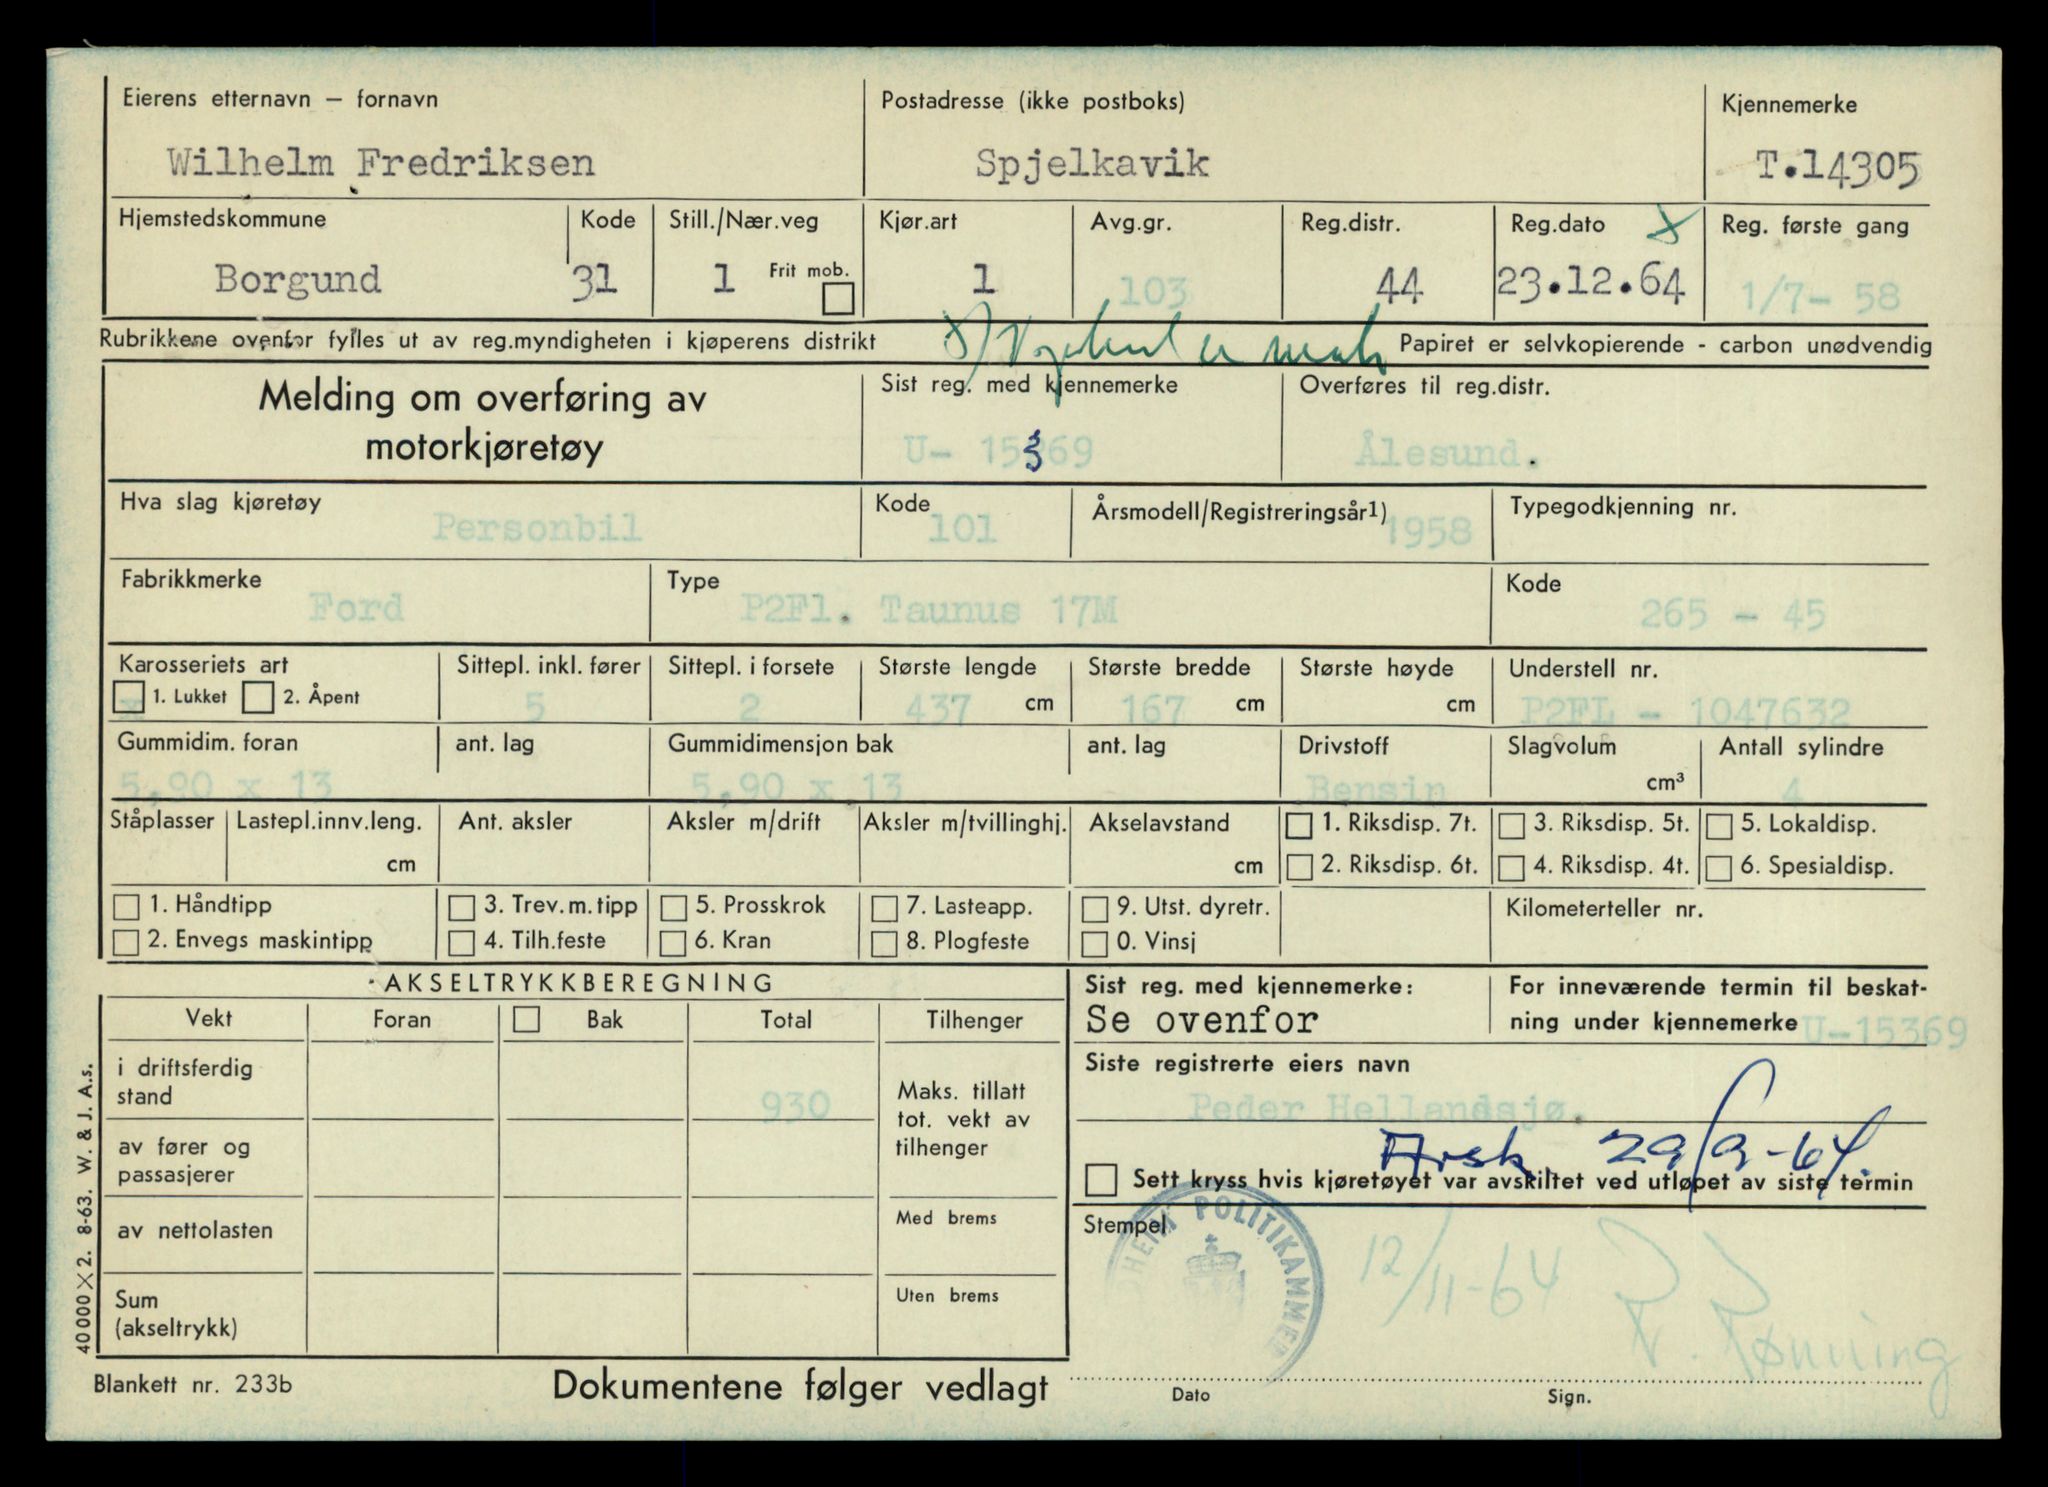 Eierens etternavn – fornavn
Postadresse (ikke postboks)
Kjennemerke
Wilhelm Fredriksen
Spjelkavik
T.14305
Hjemstedskommune
Kode
Still./Nær.veg
Kjør.art
Avg.gr.
Reg.distr.
Reg.dato x
Reg. første gang
Borgund
31
1
Frit mob.
1
103
44
23.12.64
1/7- 58
Rubrikkene ovenfor fylles ut av reg.myndigheten i kjøperens distrikt
Papiret er selvkopierende - carbon unødvendig
Melding om overføring av
motorkjøretøy
Sist reg. med kjennemerke
Overføres til reg.distr.
U- 15369
Ålesund.
Hva slag kjøretøy
Kode
Årsmodell/Registreringsår1)
Typegodkjenning nr.
Personbil
101
1958
Fabrikkmerke
Type
Kode
Ford
P2Fl. Taunus 17M
265 - 45
Karosseriets art
Sittepl. inkl. fører
Sittepl. i forsete
Største lengde
Største bredde
Største høyde
Understell nr.
x 1. Lukket 2. Åpent
5
2
437 cm
167 cm
cm
P2FL - 1047632
Gummidim. foran
ant. lag
Gummidimensjon bak
ant. lag
Drivstoff
Slagvolum
Antall sylindre
5,90 x 13
5,90 x 13
Bensin
cm³
4
Ståplasser
Lastepl.innv.leng.
Ant. aksler
Aksler m/drift
Aksler m/tvillinghj.
Akselavstand
1. Riksdisp. 7t.
3. Riksdisp. 5t.
5. Lokaldisp.
cm
cm
2. Riksdisp. 6t.
4. Riksdisp. 4t.
6. Spesialdisp.
1. Håndtipp
3. Trev.m.tipp
5. Prosskrok
7. Lasteapp.
9. Utst. dyretr.
Kilometerteller nr.
2. Envegs maskintipp
4. Tilh.feste
6. Kran
8. Plogfeste
0. Vinsj
AKSELTRYKKBEREGNING
Sist reg. med kjennemerke:
For inneværende termin til beskat-
Vekt
Foran
Bak
Total
Tilhenger
Se ovenfor
ning under kjennemerke U-15369
i driftsferdig
stand
930
Maks. tillatt
tot. vekt av
tilhenger
Siste registrerte eiers navn
Peder Hellandsjø.
av fører og
passasjerer
Avsk. 29/9-64
Sett kryss hvis kjøretøyet var avskiltet ved utløpet av siste termin
av nettolasten
Med brems
Stempel
HEIM POLITIKAMMER
12/11-64
R. Rønning
Sum
(akseltrykk)
Uten brems
40000 X 2. 8-63. W. & J. A.s.
Blankett nr. 233b
Dokumentene følger vedlagt
Dato
Sign.